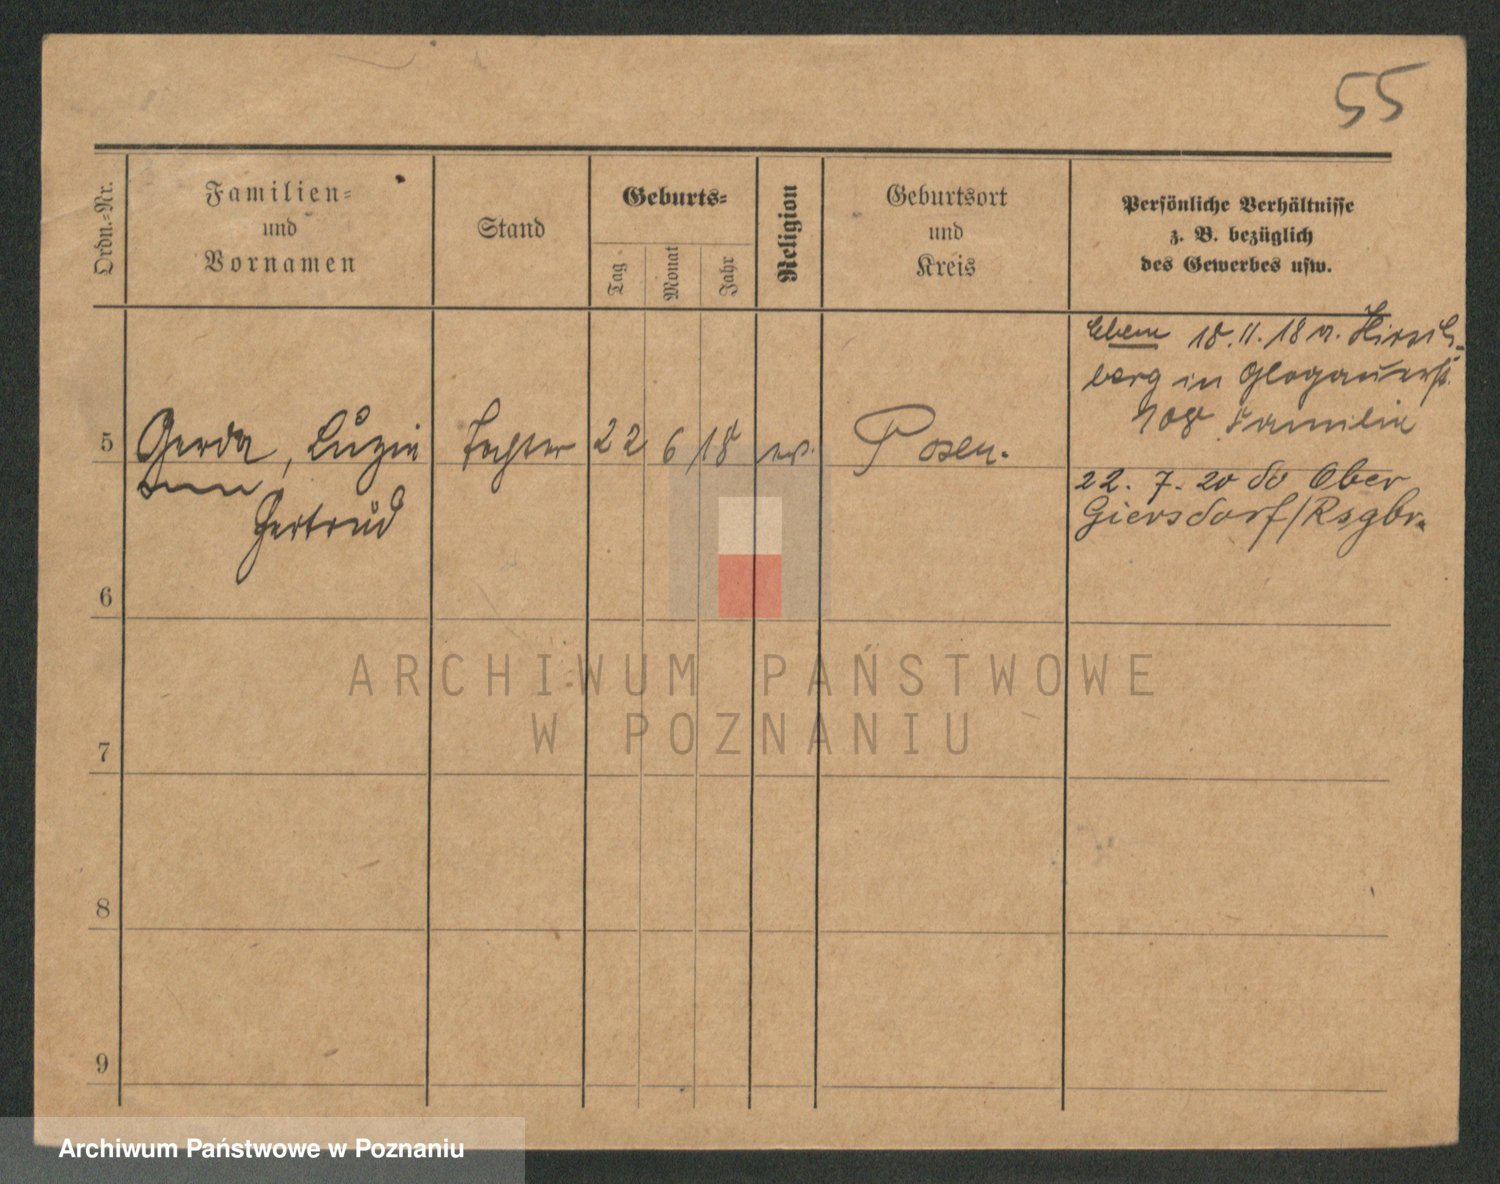 55
Ordn.-Nr.
Familien-
und
Vornamen
Stand
Geburts-
Tag
Monat
Jahr
Religion
Geburtsort
und
Kreis
Persönliche Verhältnisse
z. B. bezüglich
des Gewerbes usw.
18.11.18 n. Hirsch-
berg in Glogauerstr.
108 Familie
5 Gerda, Luzie Tochter 22 6 18 ev. Posen.
Gertrud
22. 7. 20 do Ober
Giersdorf/Rsgbr.
6
7
8
9
ARCHIWUM PAŃSTWOWE
W POZNANIU
Archiwum Państwowe w Poznaniu